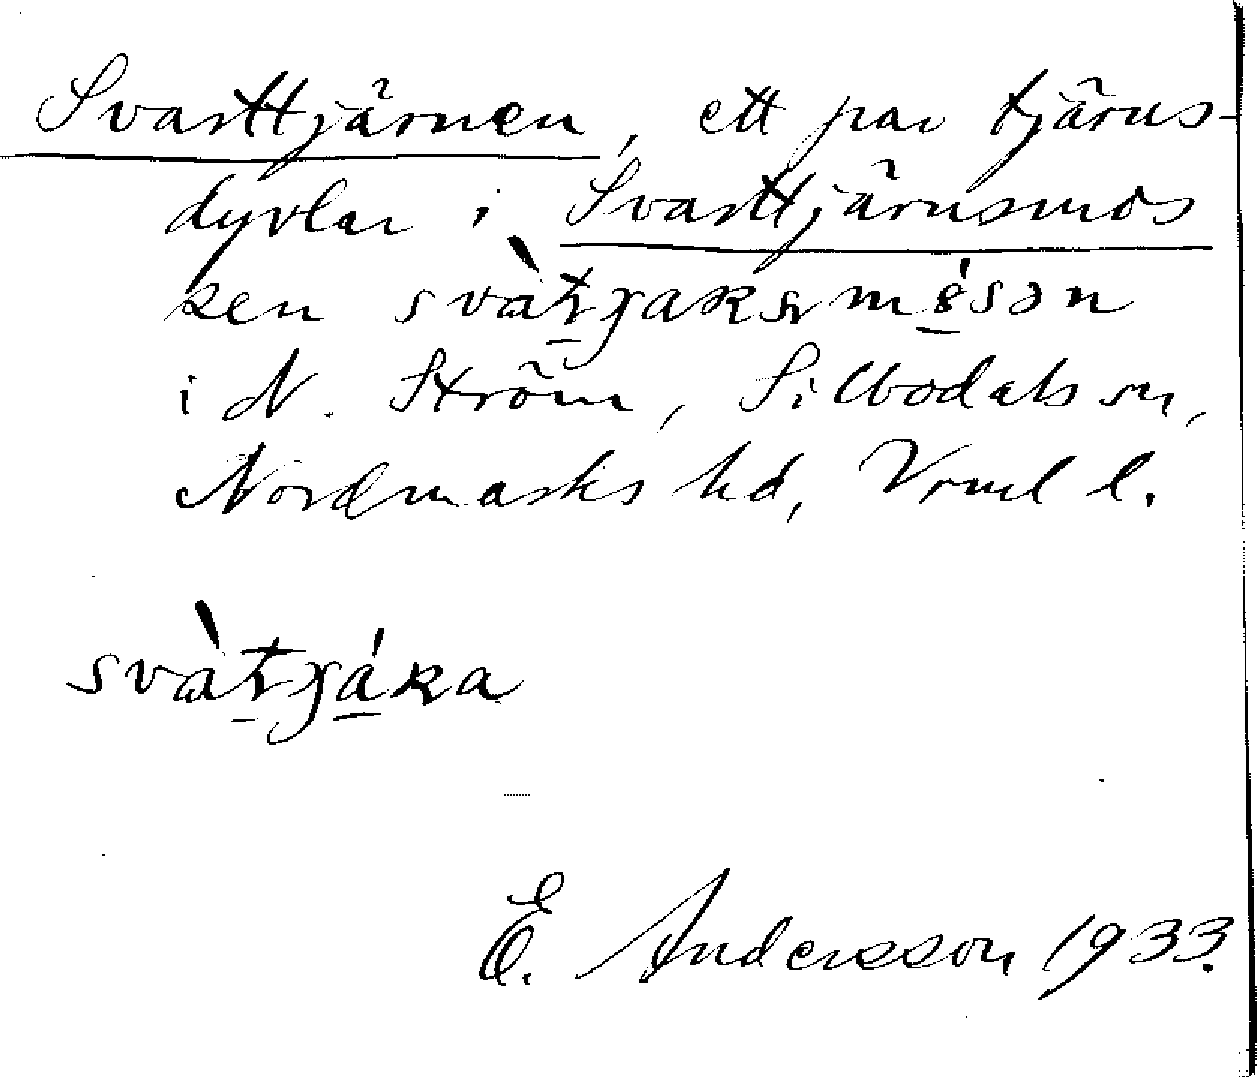 Svarttjärnen, ett par tjärns-
dyvlar i Svarttjärnsmos
sen
i N. Ström, Silbodals sn,
Nordmarks hd, Vrml l.
E. Andersson 1933.